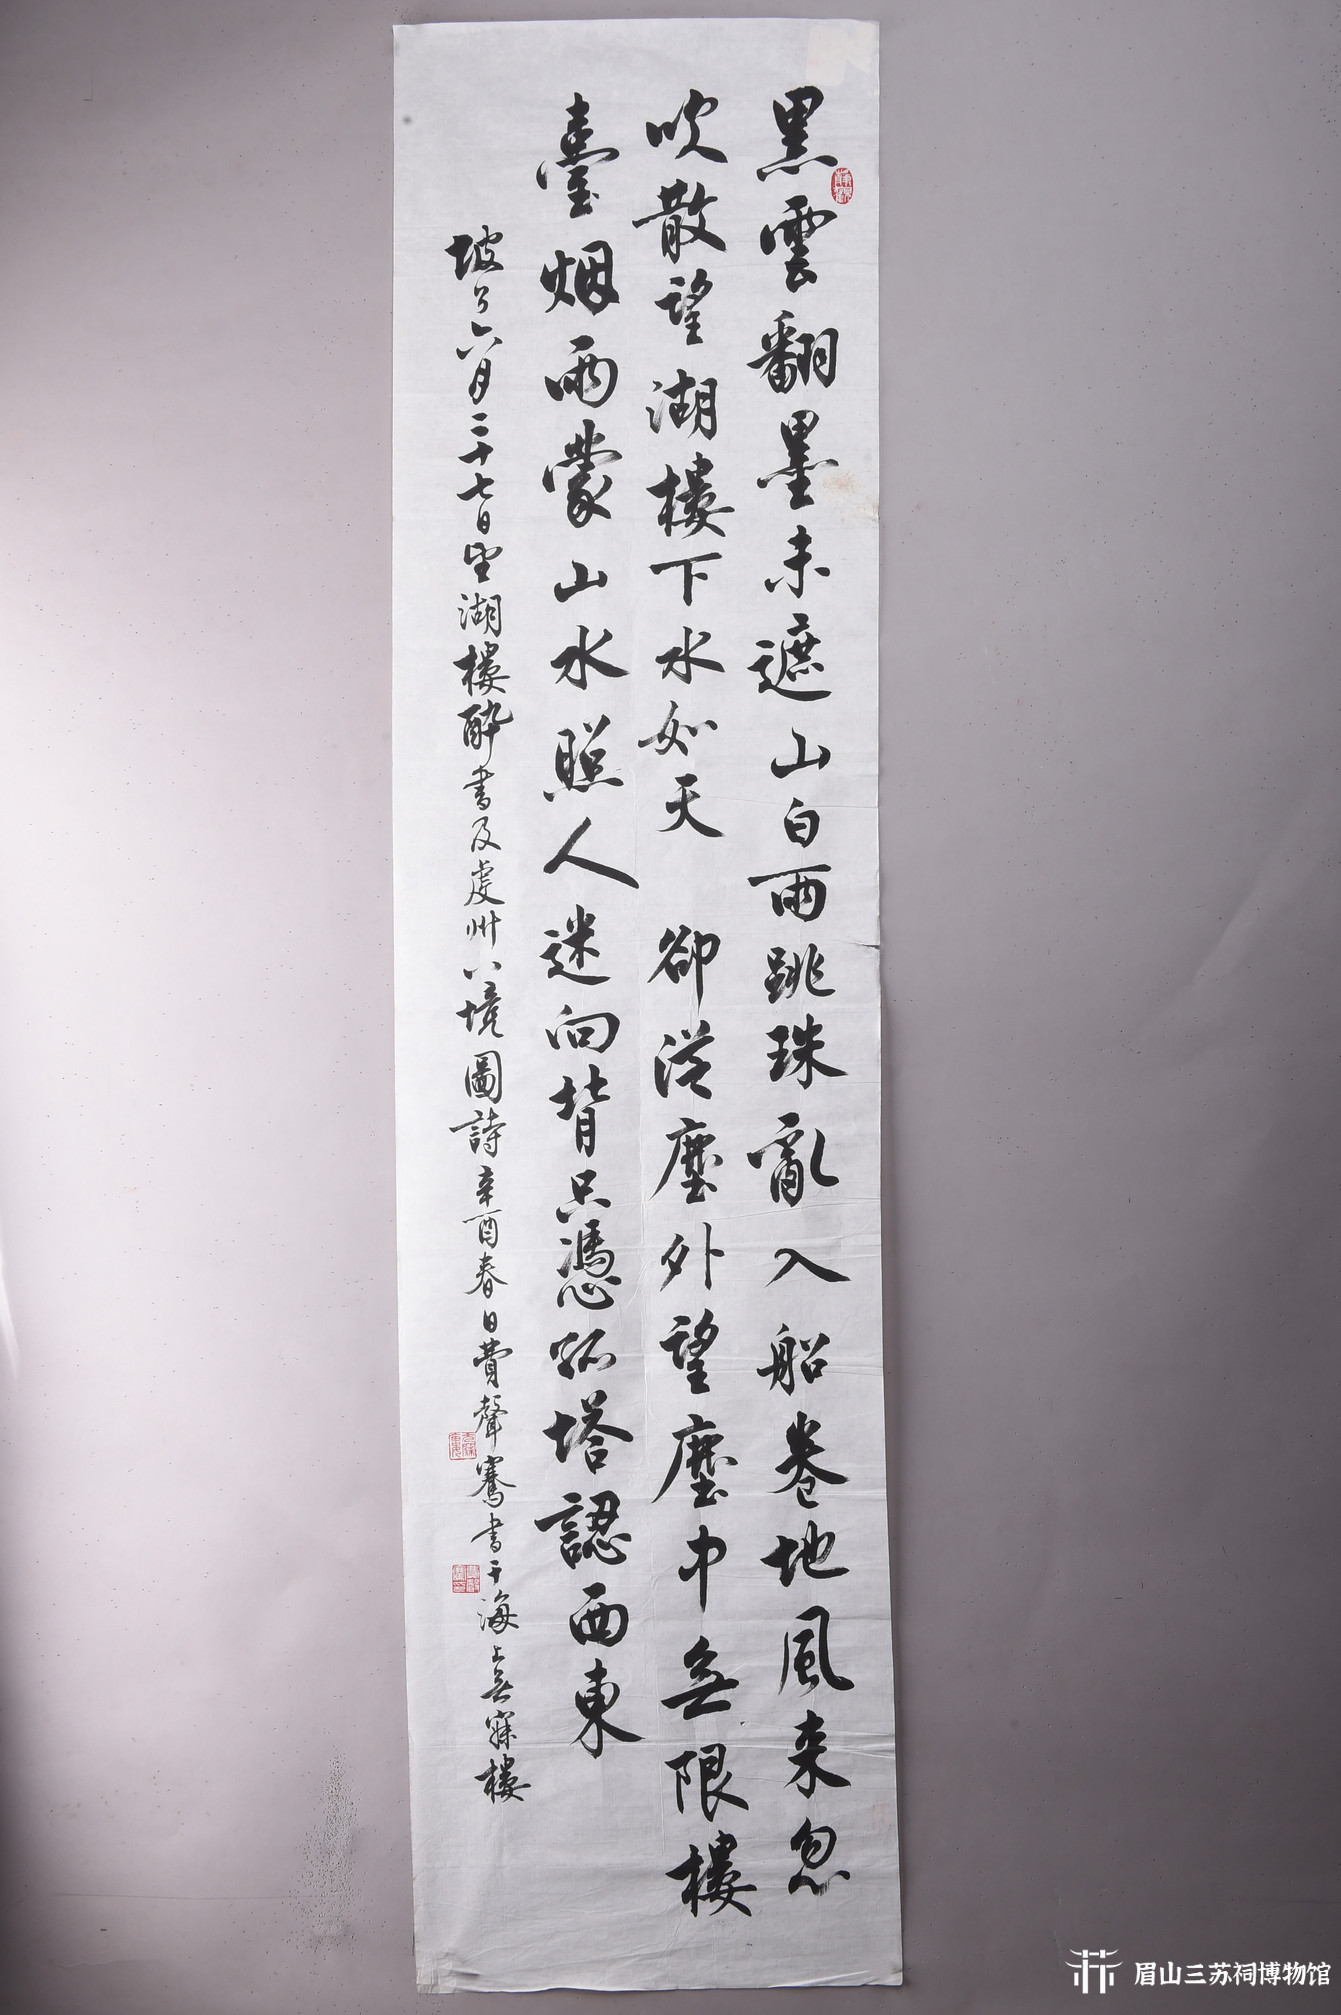 黑雲翻墨未遮山白雨跳珠亂入船卷地風来忽
吹散望湖樓下水如天 卻從塵外望塵中無限樓
臺烟雨蒙山水照人迷向背只憑孤塔認西東
坡公六月二十七日望湖樓醉書及虔州八境圖詩辛酉春日費聲騫書于海上無寐樓
眉山三苏祠博物馆